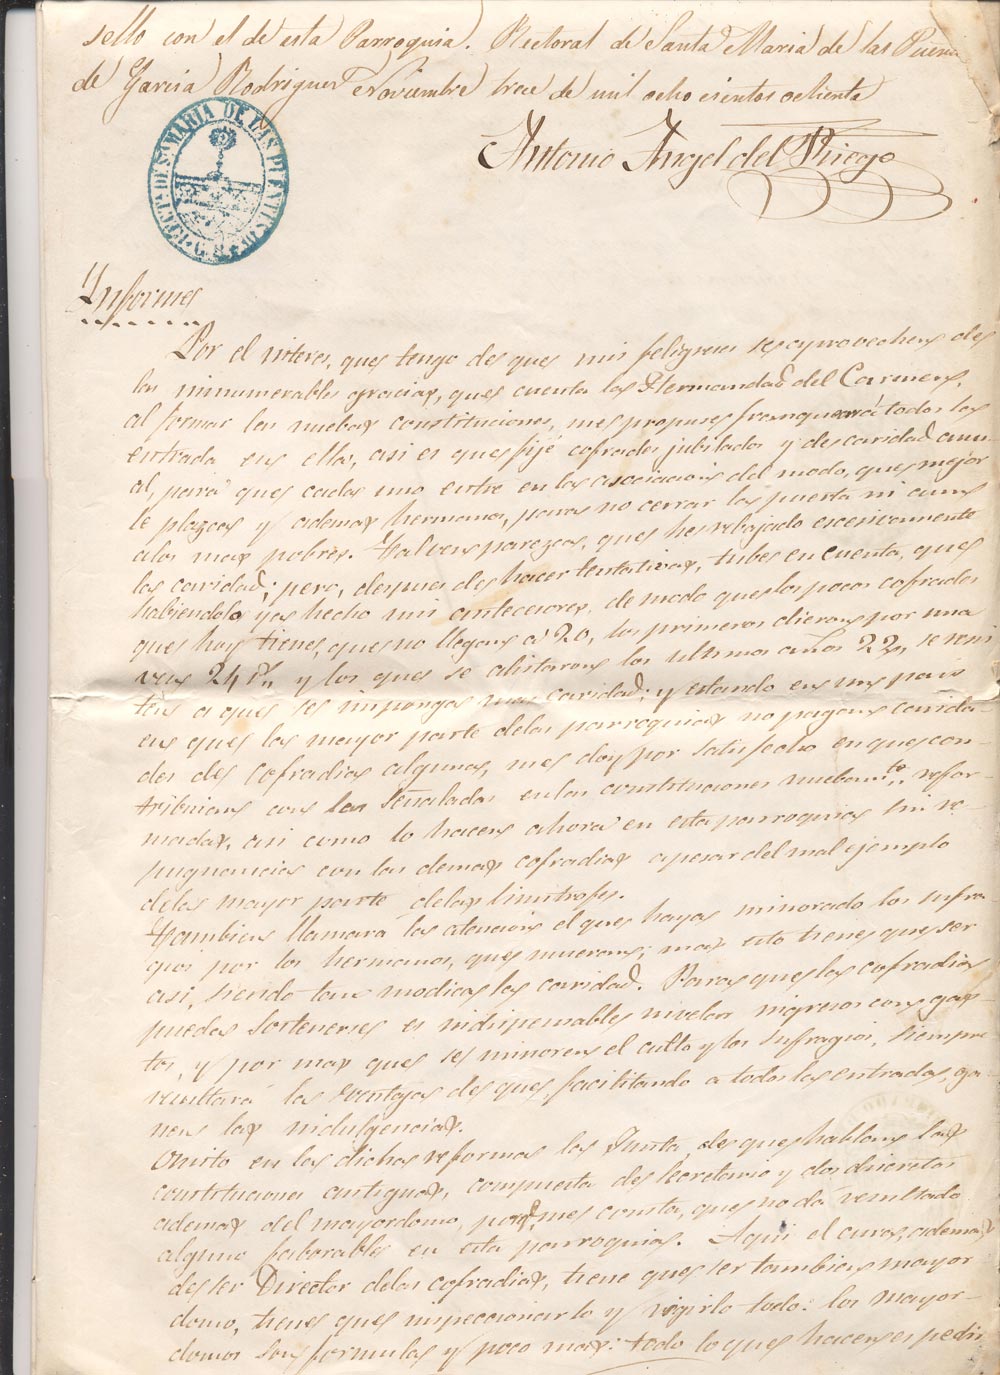 sello con el de esta Parroquia. Rectoral de Santa Maria de las Puen
de Garcia Rodriguez Noviembre trece de mil ocho cientos ochenta
Antonio Angel del Riego
STA MARIA DE LAS PUENTES D
Informe
Por el interes, que tengo de que mis feligreses se aprovechen de
las innumerables gracias, que cuenta la Hermandad del Carmen,
al formar las nuebas constituciones, me propuse franquear á todos la
entrada en ella, asi es que fijé cofrades jubilados y de caridad anu-
al, para que cada uno entre en la asociacion del modo, que mejor
le plazca y ademas hermanos, para no cerrar la puerta ni aun
a los mas pobres. Tal vez parezca, que he rebajado escesivamente
la caridad; pero, despues de hacer tentativas, tube en cuenta, que
habiendolo ya hecho mi antecesores, de modo que los pocos cofrades
que hoy tiene, que no llegan á 20, los primeros dieron por una
vez 24 rs y los que se alistaron los ultimos años 22, se resis
ten a que se imponga mas caridad; y estando en un pais
en que la mayor parte de las parroquias no pagan carida-
des de cofradias algunas, me doy por satisfecho en que con-
tribuian con las señaladas en las constituciones nuebamte refor-
madas, asi como lo hacen ahora en esta parroquia sin re-
pugnancia con las demas cofradias apesar del mal ejemplo
de la mayor parte de las limitrofes.
Tambien llamará la atencion el que haya minorado los sufra-
gios por los hermanos, que mueran; mas esto tiene que ser
asi, siendo tan modica la caridad. Para que la cofradia
pueda sostenerse es indispensable nivelar ingresos con gas-
tos, y por mas que se minoren el culto y los sufragios, siempre
resultará la ventaja de que, facilitando a todos la entrada, ga-
nen las indulgencias.
Omito en las dichas reformas la Junta, de que hablan las
constituciones antiguas, compuesta de secretario y dos discretos
ademas del mayordomo, porq. me consta, que no da resultado
alguno faborable en esta parroquia. Aqui el cura, ademas
de ser Director de las cofradias, tiene que ser tambien mayor
domo, tiene que inspeccionarlo y rigirlo todo: los mayor-
domos son formulas y poco mas: todo lo que hacen es pedir